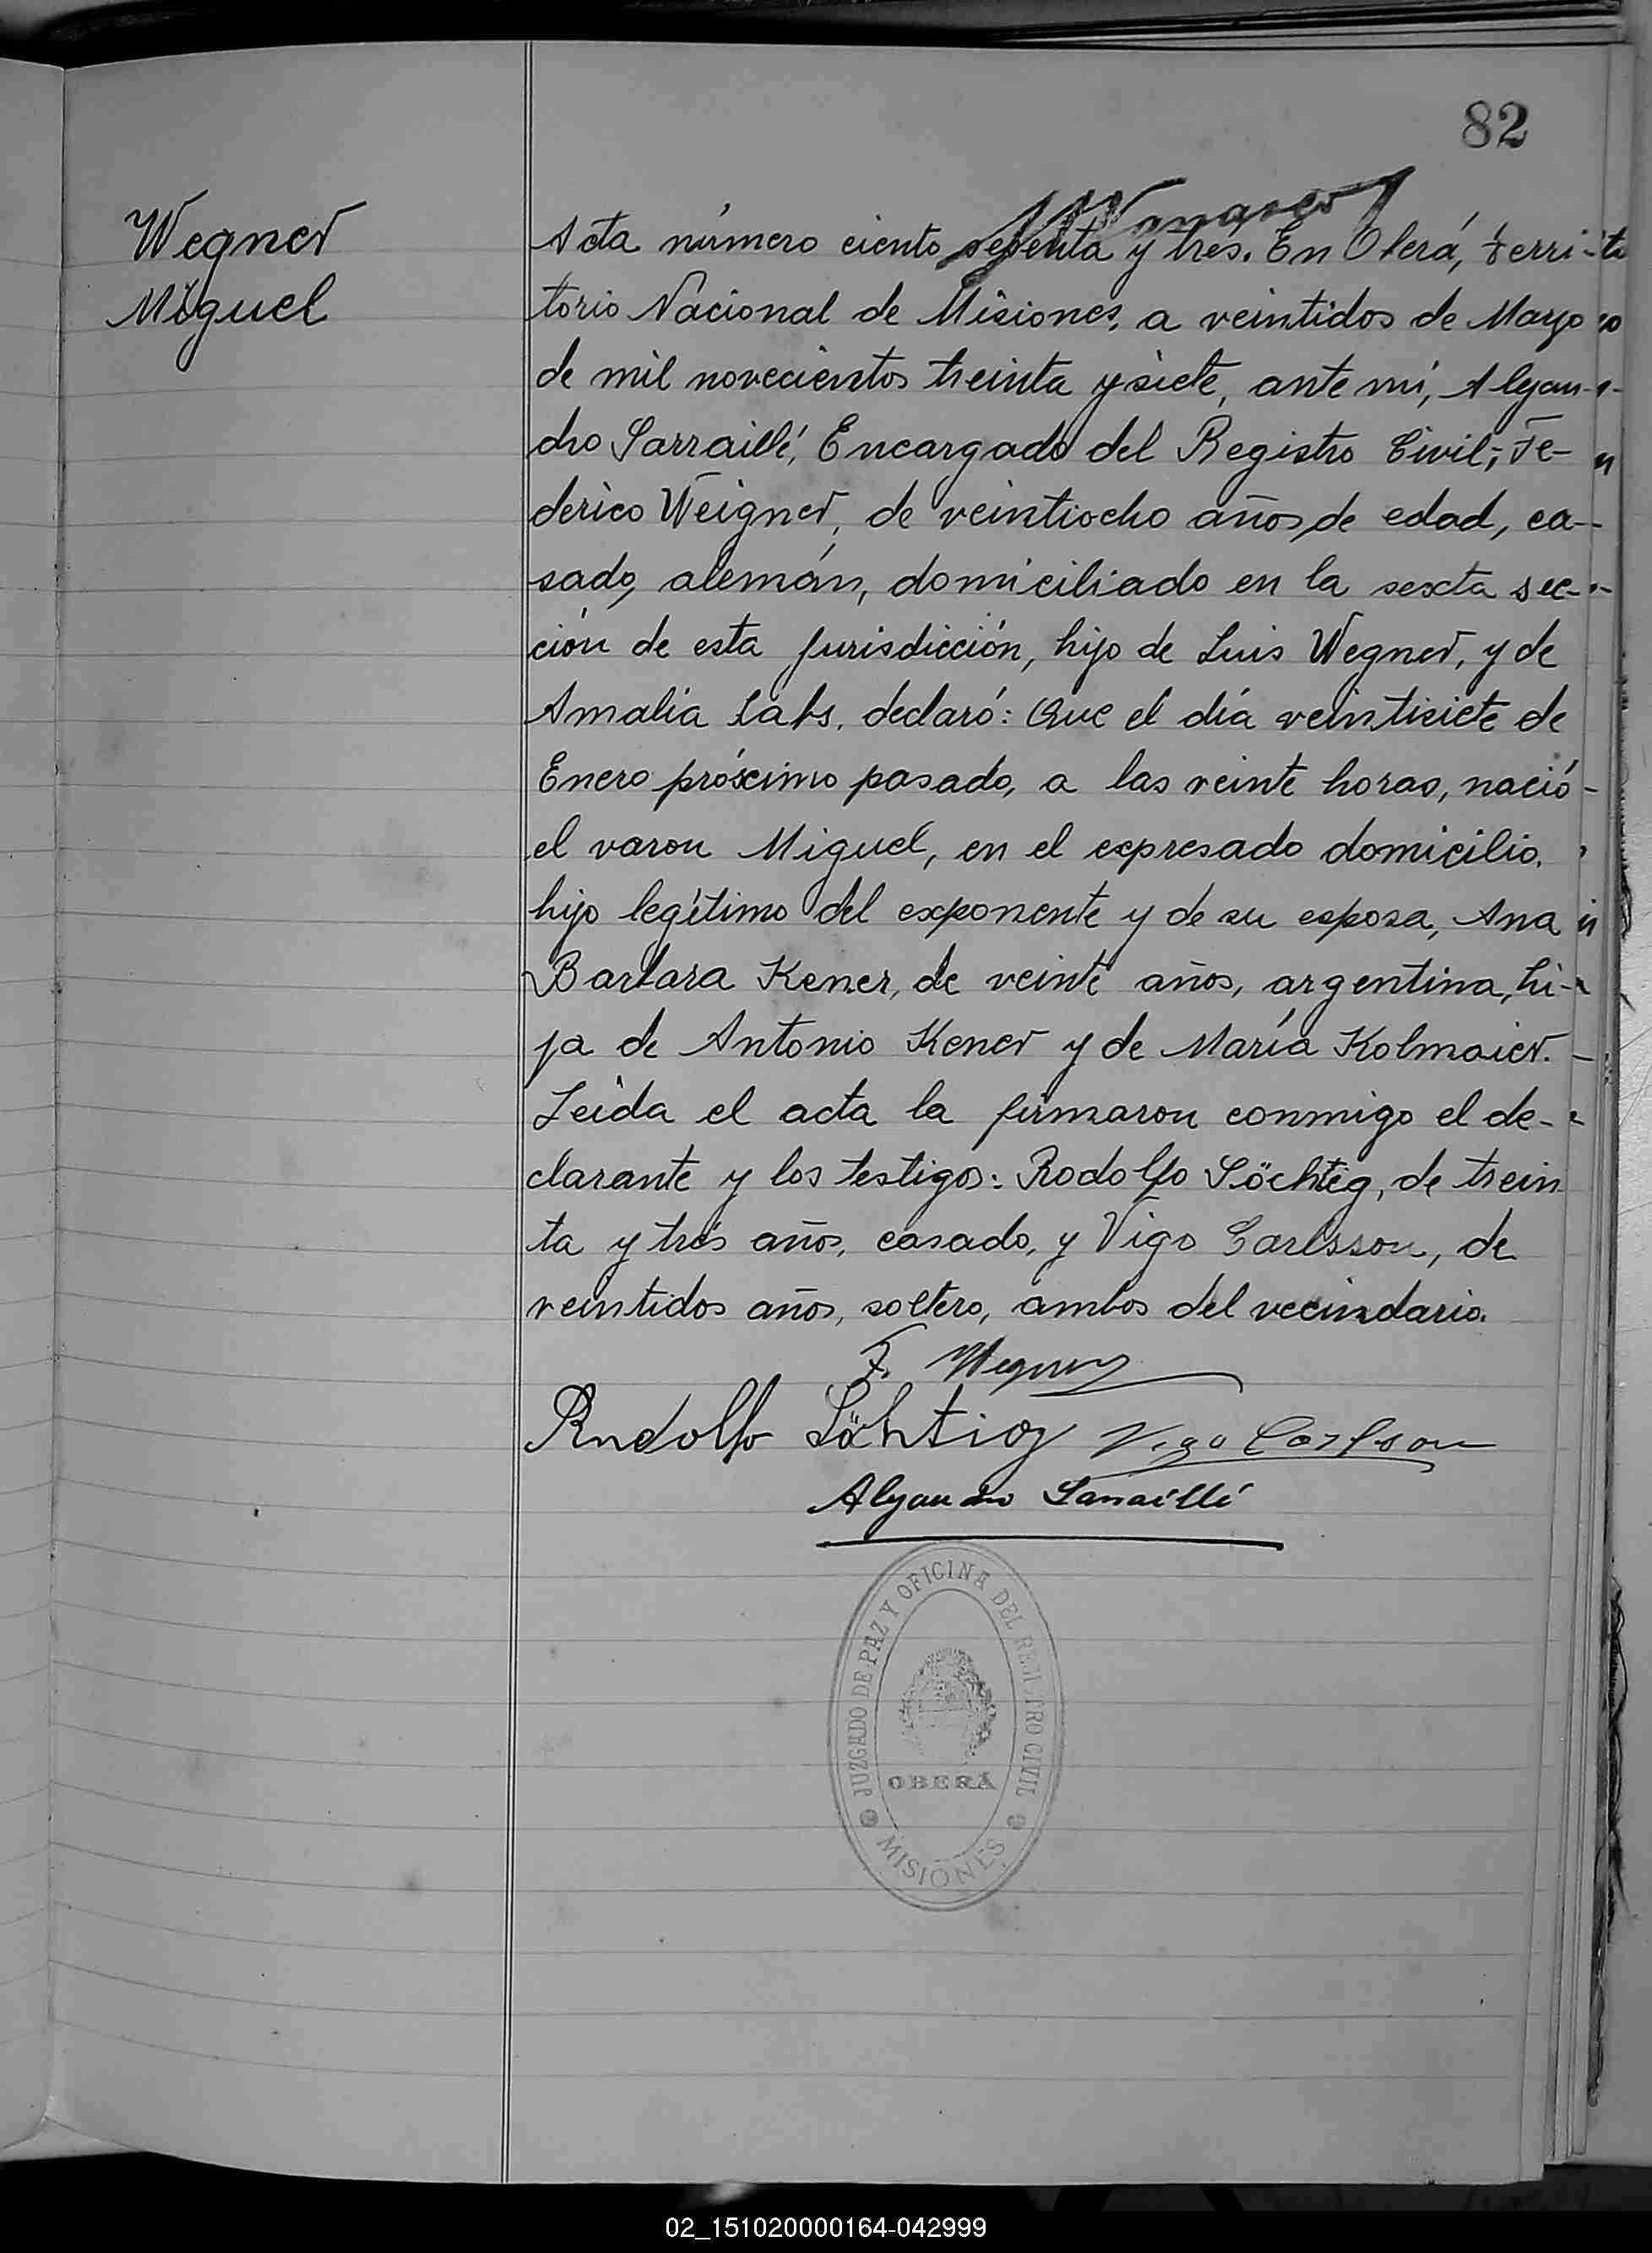 82
Wegner
Miguel
Acta número ciento setenta y tres. En Oberá, terri-
torio Nacional de Misiones, a veintidos de Mayo
de mil novecientos treinta y siete, ante mí, Alejan-
dro Sarraillé, Encargado del Registro Civil; Fe-
derico Weigner, de veintiocho años de edad, ca-
sado, alemán, domiciliado en la sexta sec-
ción de esta jurisdicción, hijo de Luis Wegner, y de
Amalia Labs, declaró: Que el día veintisiete de
Enero próximo pasado, a las veinte horas, nació
el varon Miguel, en el expresado domicilio,
hijo legítimo del exponente y de su esposa, Ana
Barbara Kener, de veinte años, argentina, hi-
ja de Antonio Kener y de María Kolmaier.
Leida el acta la firmaron conmigo el de-
clarante y los testigos: Rodolfo Söchtig, de trein
ta y trés años, casado, y Vigo Carlsson, de
veintidos años, soltero, ambos del vecindario.
F. Wegner
Rudolfo Söchtig Vigo Carlsson
Alejandro Sarraillé
JUZGADO DE PAZ Y OFICINA DEL REJISTRO CIVIL
OBERÁ
MISIONES
02_151020000164-042999